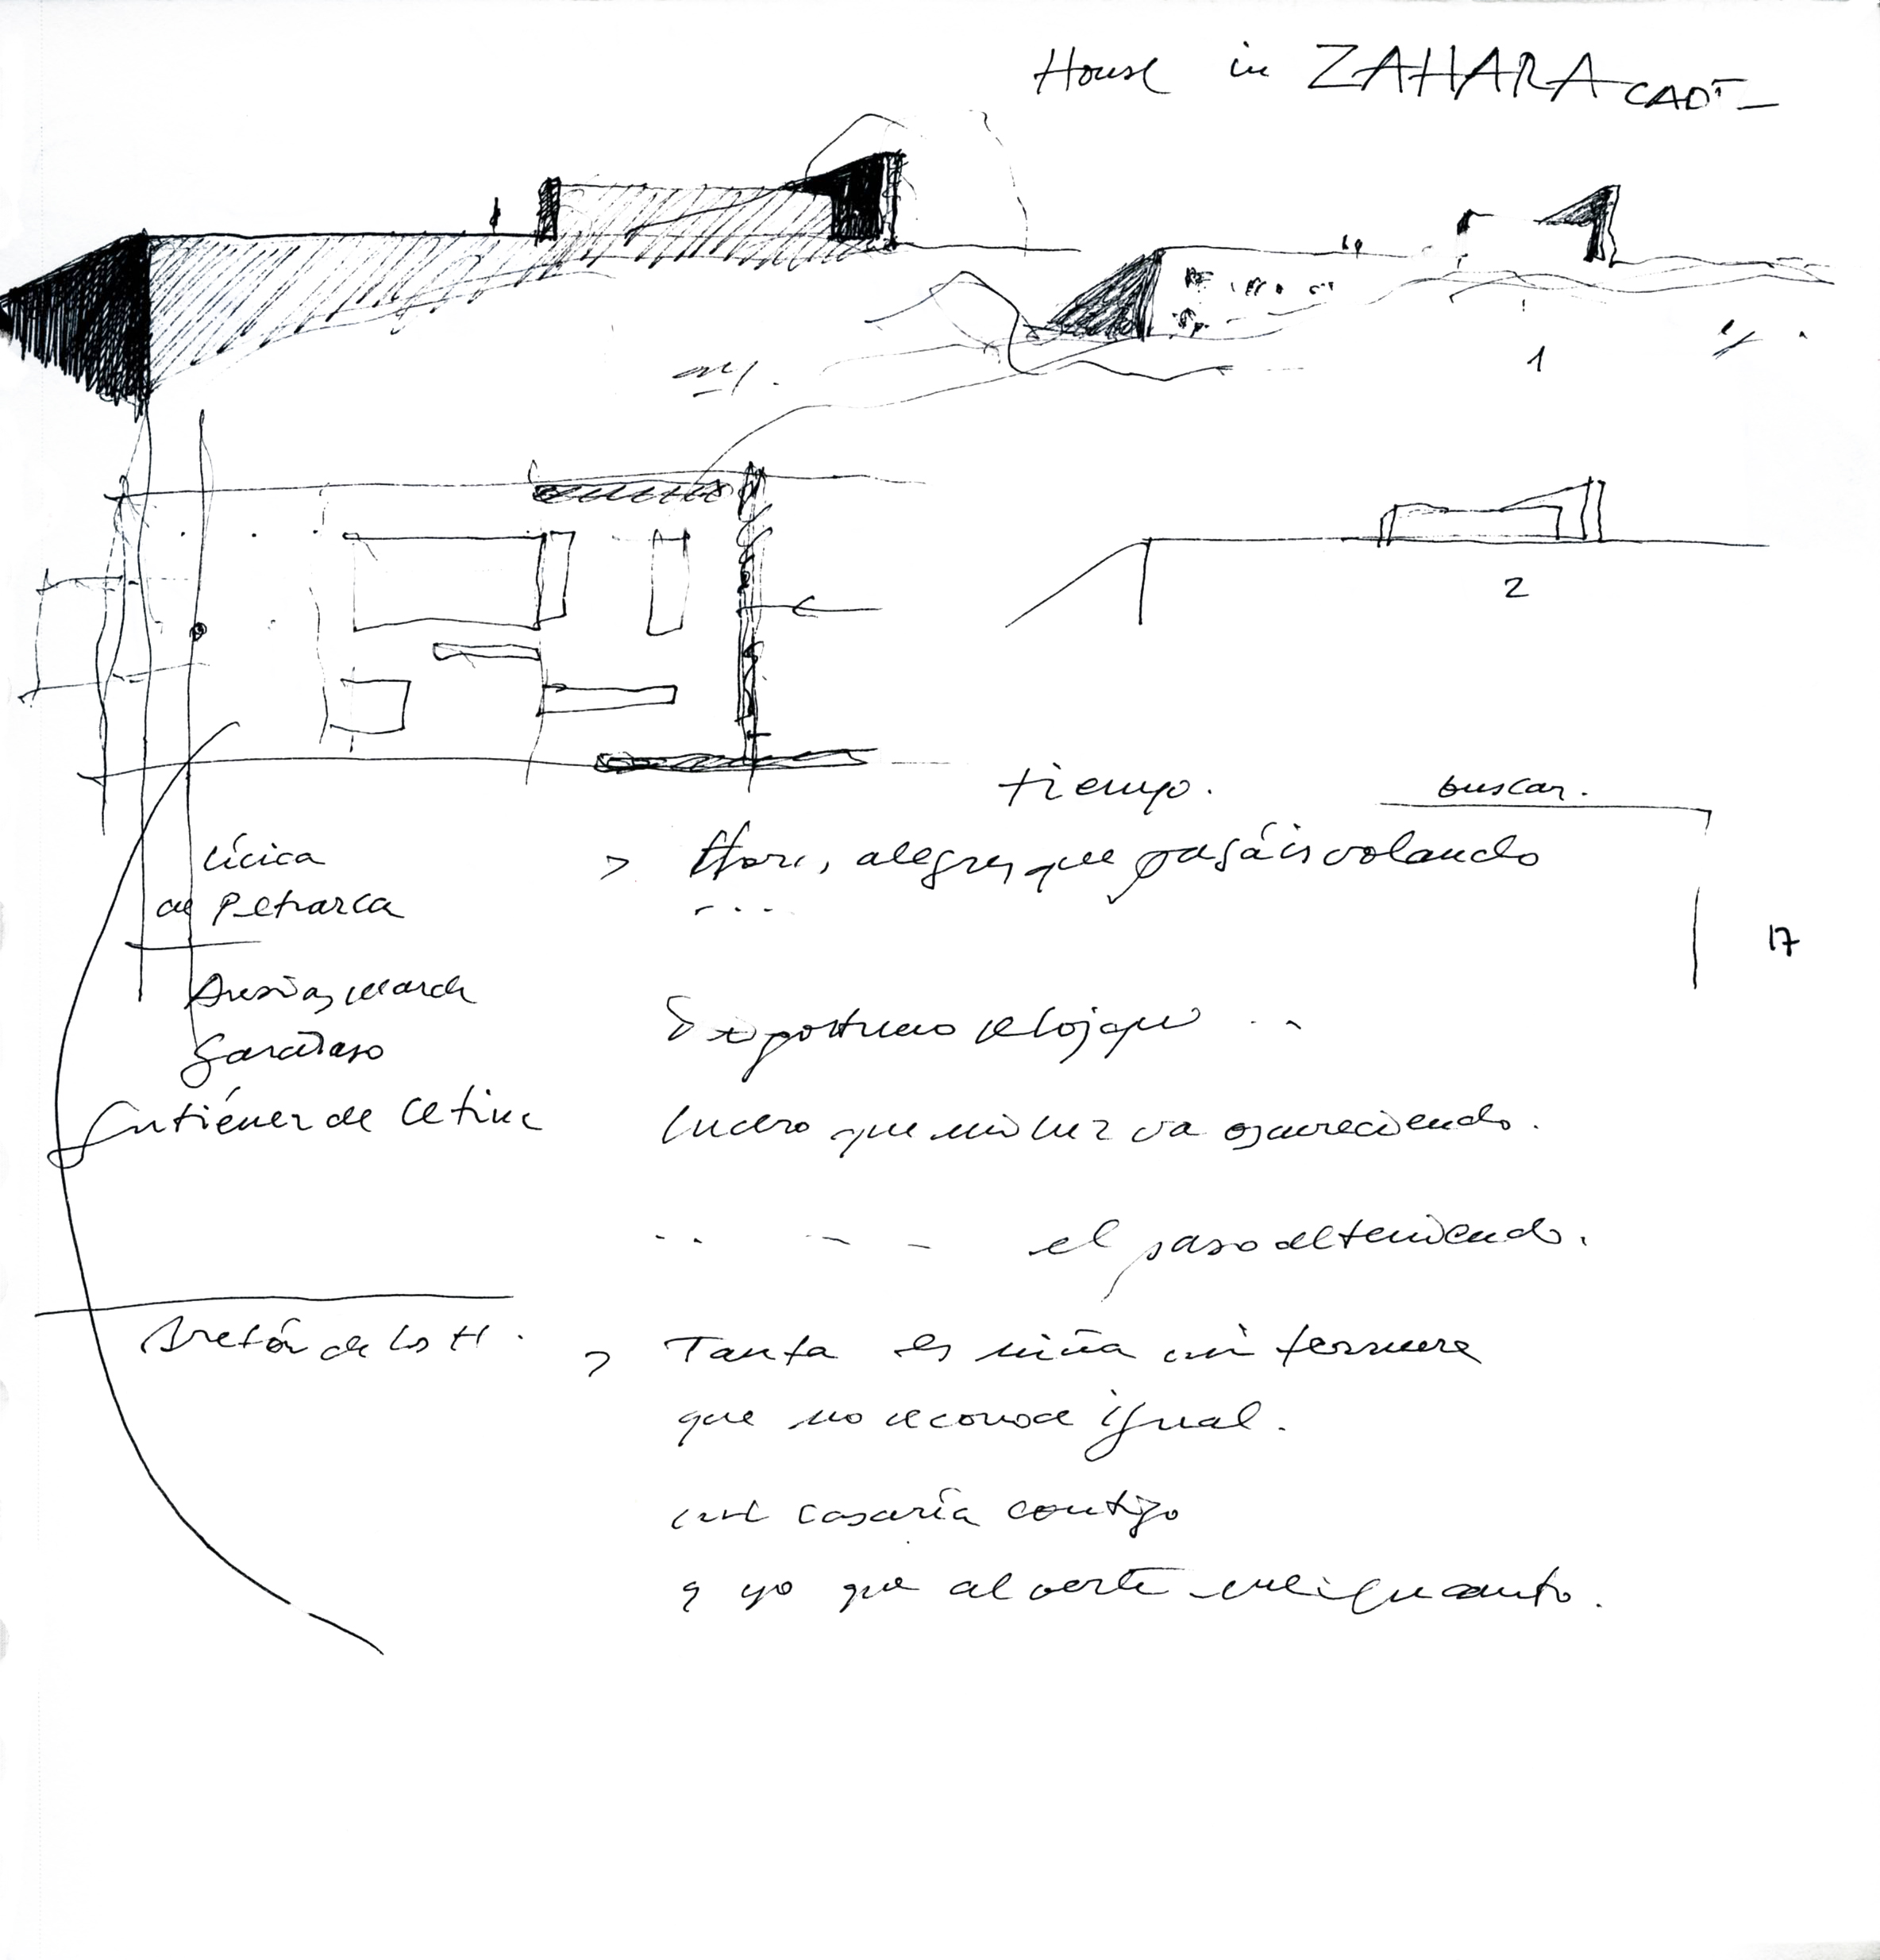 House in ZAHARA CADI
1
2
tiempo.
buscar.
Lírica
de Petrarca
> Horas alegres que pasáis volando
...
17
Ausias March
Garcilaso
reloj que ..
Gutiérrez de Cetina
lucero que mi luz va oscureciendo.
el paso deteniendo.
Bretón de los H.
> Tanta es niña mi ternura
que no reconoce igual.
casaría contigo
y yo que al verte